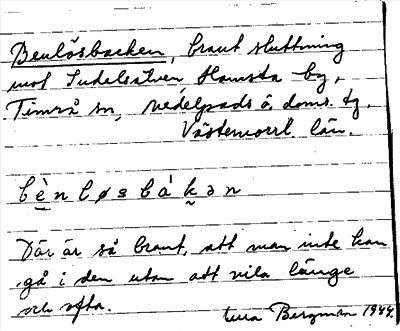 Benlösbacken, brant sluttning
mot Indalsälven Hamsta by,
Timrå sn, Medelpads ö. doms. tg.
Västernorrl. län.
b è n l ø s b á k ə n
Där är så brant, att man inte kan
gå i den utan att vila länge
och ofta.
Bergman 1944.